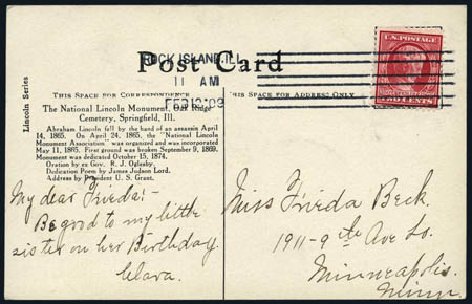 Post Card
ROCK ISLAND, ILL.
11 AM
FEB 12 '09
U.S. POSTAGE
TWO CENTS
THIS SPACE FOR CORRESPONDENCE
THIS SPACE FOR ADDRESS ONLY
Lincoln Series
The National Lincoln Monument, Oak Ridge
Cemetery, Springfield, Ill.
Abraham Lincoln fell by the hand of an assassin April
14, 1865. On April 24, 1865, the "National Lincoln
Monument Association" was organized and was incorporated
May 11, 1865. First ground was broken September 9, 1869.
Monument was dedicated October 15, 1874.
Oration by ex Gov. R. J. Oglesby
Dedication Poem by James Judson Lord.
Address by President U. S. Grant.
My dear Frieda:-
Be good to my little
sister on her Birthday.
Clara.
Miss Frieda Beck.
1911-9 the Ave So.
Minneapolis.
Minn